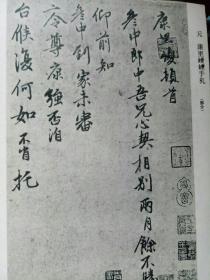 元 康里巎巎手札
康里巎頓首
彥中郎中吾兄心契相別兩月餘不勝
仰前知
彥中到家未審
令尊康強否洎
台候復何如不肖托